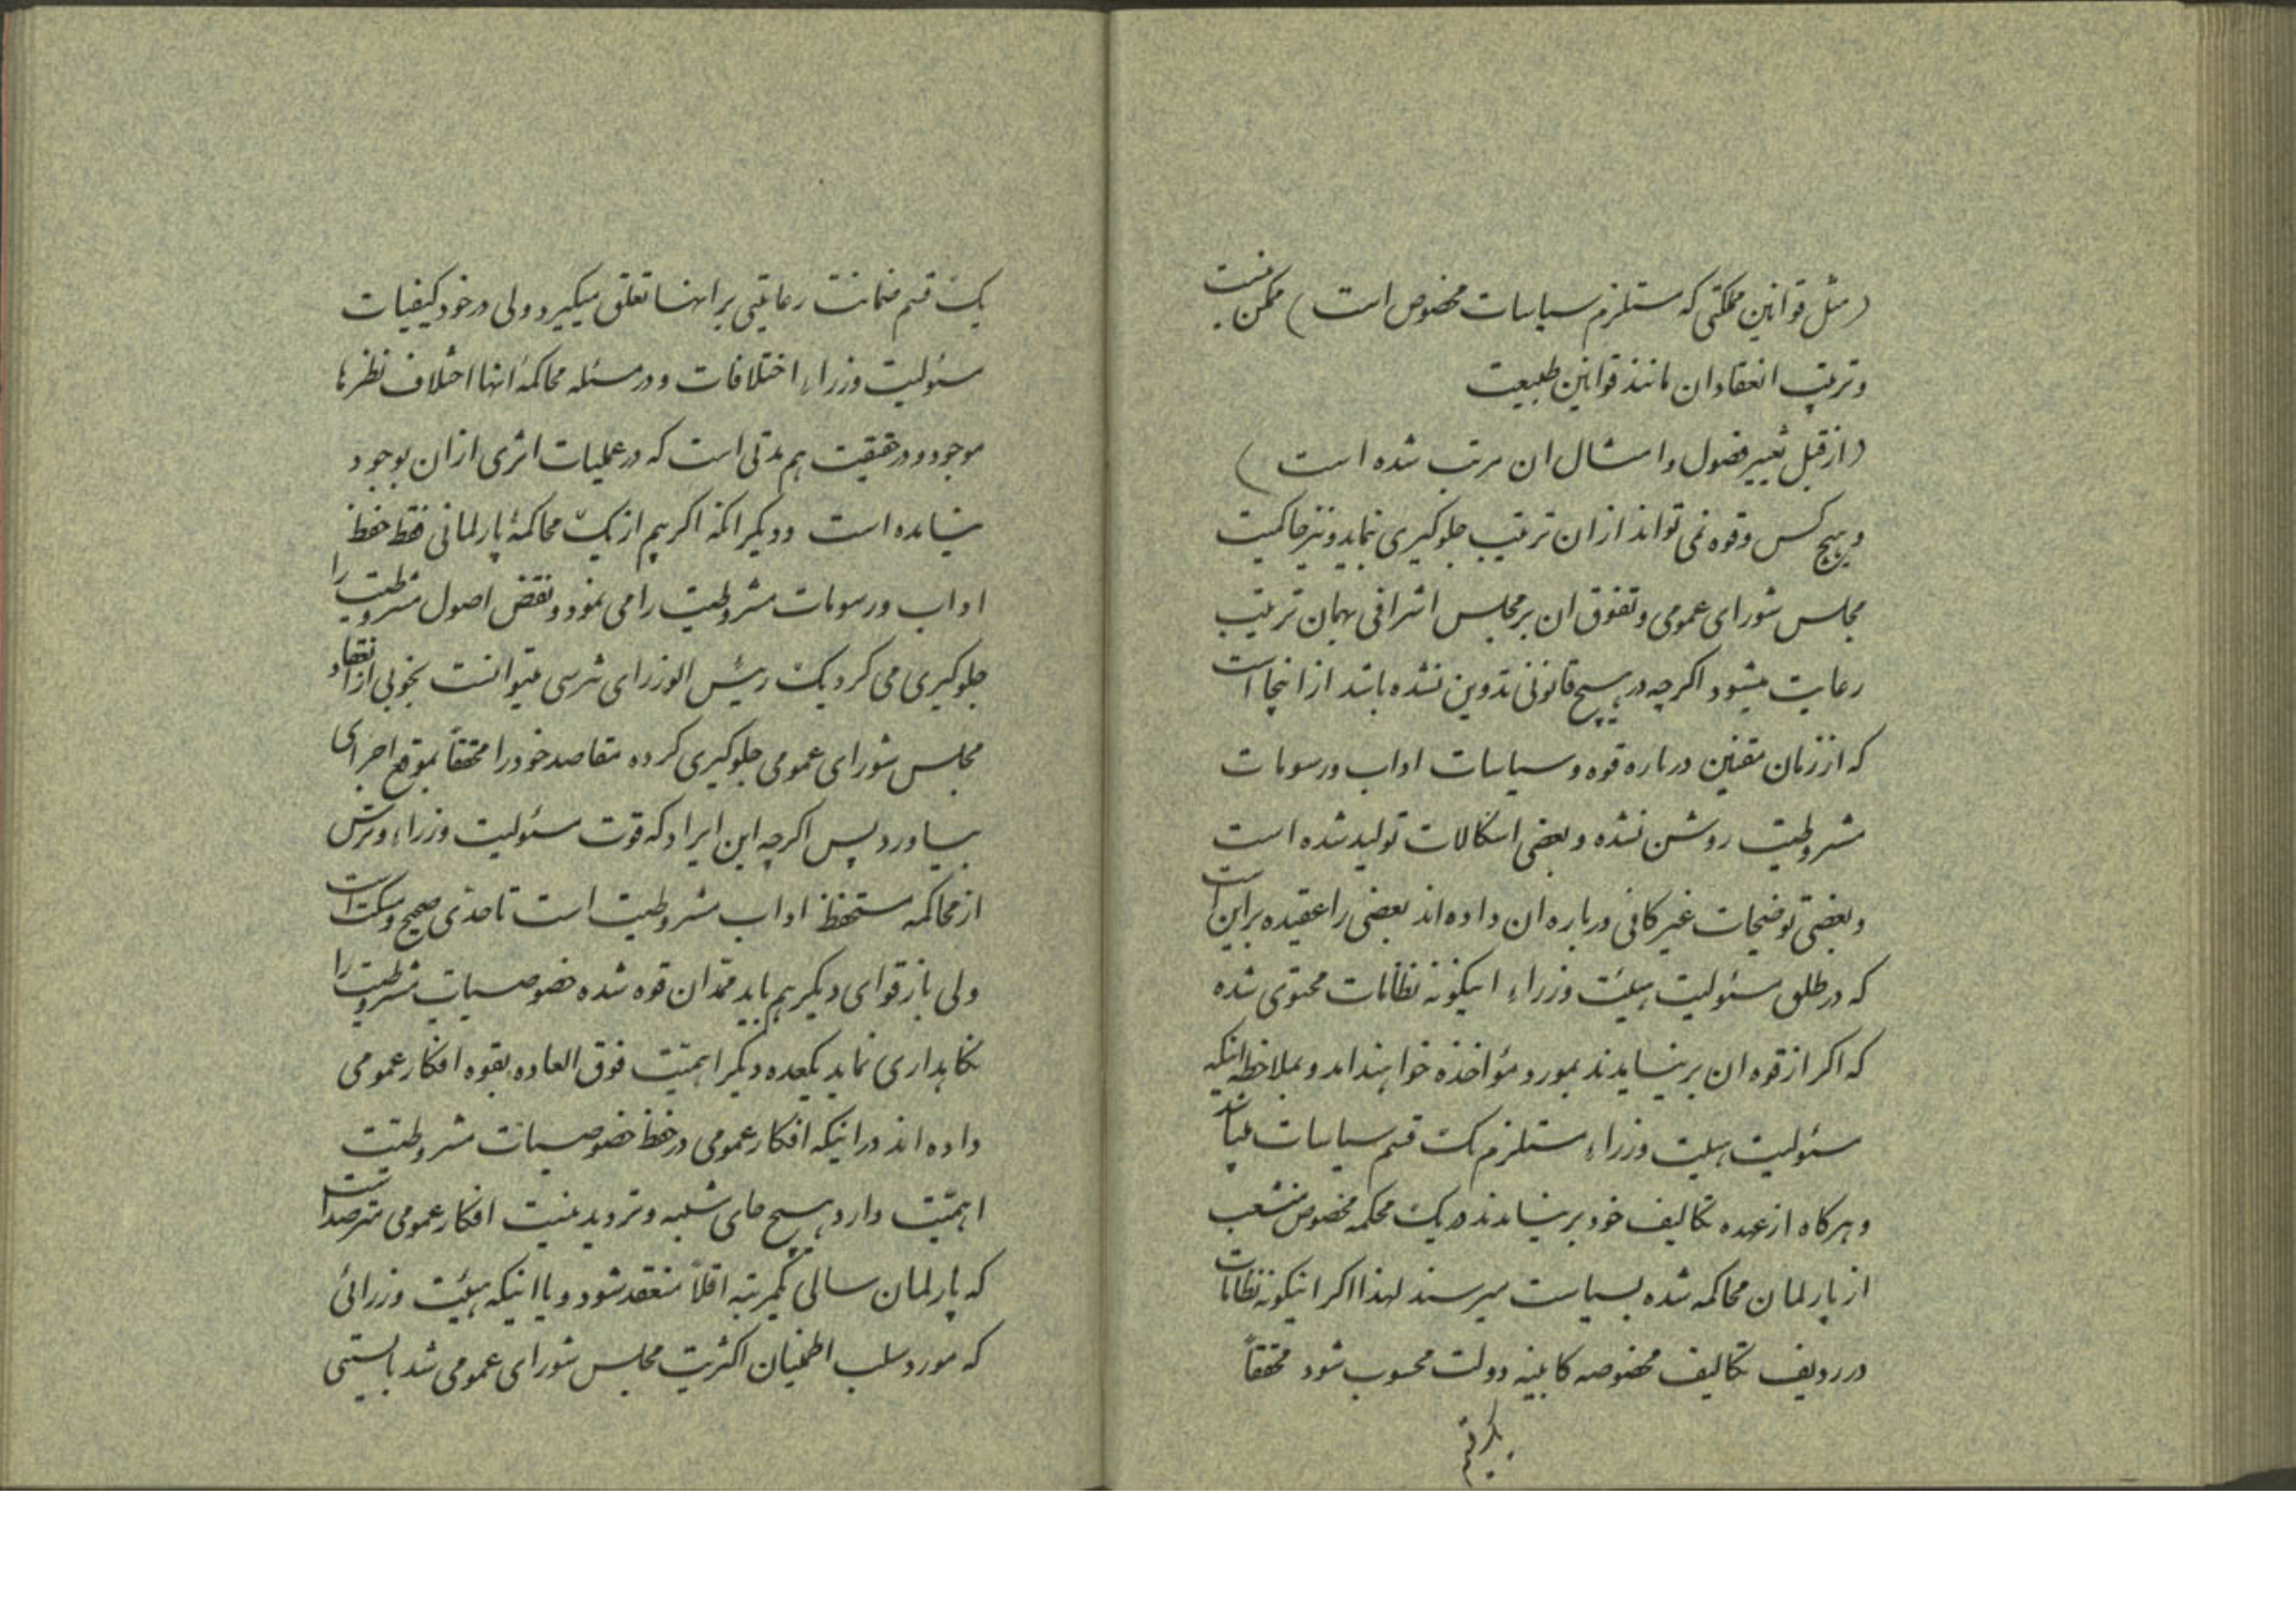 (مثل قوانین مملکتی که مستلزم سیاسات مخصوص است) ممکن نیست
و ترتیب انعقاد ان مانند قوانین طبیعت
(از قبل تغییر فصول و امثال ان مرتب شده است)
و هیچ کس و قوه نمی تواند از ان ترتیب جلوکیری نماید و نیز حاکمیت
مجلس شورای عمومی و تفوق ان بر مجلس اشرافی بهمان ترتیب
رعایت میشود اکرچه در هیچ قانونی تدوین نشده باشد از اینجا است
که از زمان مقنین درباره قوه و سیاسات اداب و رسومات
مشروطیت روشن نشده و بعضی اشکالات تولید شده است
و بعضی توضیحات غیر کافی درباره ان داده اند بعضی را عقیده بر این است
که در مسئولیت هیئت وزراء اینکونه نظامات محتوی شده
که اکر از قوه ان بر نیایدند بمورد مؤاخذه خواهند امد و بملاحظه اینکه
مسئولیت هیئت وزراء مستلزم یک قسم سیاسات میباشد
و هرکاه از عهده تکالیف خود بر نیایدند در یک محکمه مخصوص منشعب
از پارلمان محاکمه شده بسیاست میرسند لهذا اکر اینکونه نظامات
در ردیف تکالیف مخصوصه کابینه دولت محسوب شود محققاً
یک قسم
یک قسم ضمانت رعایتی بر انها تعلق میکیرد ولی در خود کیفیات
مسئولیت وزراء اختلافات و در مسئله محاکمهٔ انها اختلاف نظرها
موجود و در حقیقت هم مدتی است که در عملیات اثری از ان بوجود
نیامده است و دیکر انکه اکر بیم از یک محاکمهٔ پارلمانی فقط حفظ
اداب و رسومات مشروطیت را می نمود و نقض اصول مشروطیت را
جلوکیری می کرد یک رئیس الوزرای شرسی میتوانست بخوبی از انعقاد
مجلس شورای عمومی جلوکیری کرده مقاصد خود را محققاً بموقع اجرای
بیاورد پس اکرچه این ایراد که قوت مسئولیت وزراء و ترس
از محاکمه مستحفظ اداب مشروطیت است تا حدی صحیح و مسکت است
ولی باز قوای دیکر هم باید ممد ان قوه شده خصوصیات مشروطیت را
نکاهداری نماید یکعده دیکر اهمیت فوق العاده بقوه افکار عمومی
داده اند در اینکه افکار عمومی در حفظ خصوصیات مشروطیت
اهمیت دارد هیچ جای شبهه و تردید نیست افکار عمومی مترصد است
که پارلمان سالی یکمرتبه اقلاً منعقد شود و یا اینکه هیئت وزرائی
که مورد سلب اطمینان اکثریت مجلس شورای عمومی شد بایستی